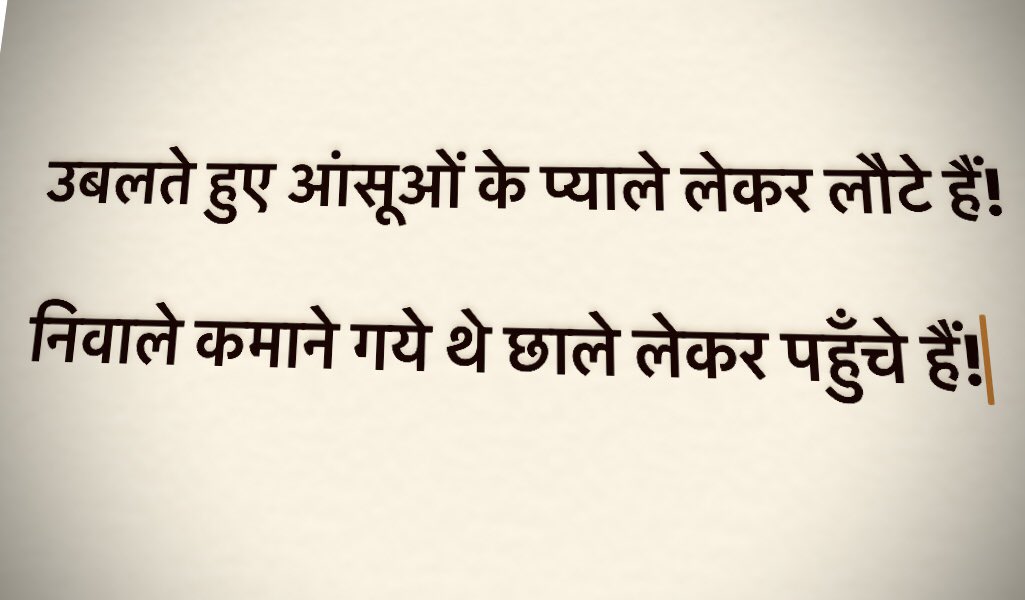 उबलते हुए आंसूओं के प्याले लेकर लौटे हैं!
निवाले कमाने गये थे छाले लेकर पहुँचे हैं!